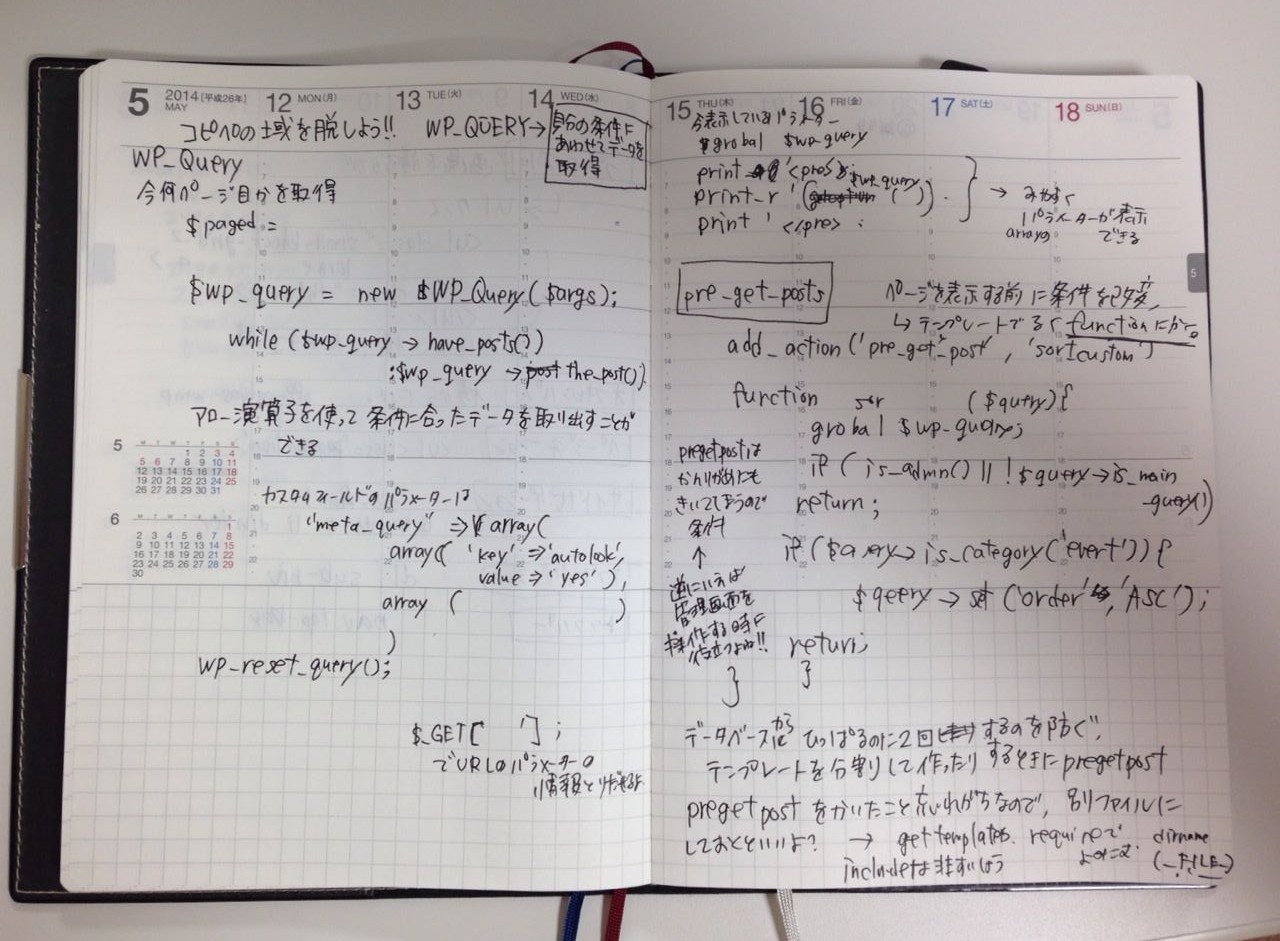 5 2014 [平成26年] MAY
12 MON(月)
13 TUE(火)
14 WED(水)
コピペの土域を脱しよう!! WP_QUERY→
自分の条件に
あわせてデータを
取得
WP_Query
今何ページ目かを取得
$paged =
$wp_query = new $WP_Query($args);
while ($wp_query → have_posts())
:$wp_query → the_post();
アロー演算子を使って条件に合ったデータを取り出すことが
できる
カスタムフィールドのパラメーターは
"meta_query" => array(
array( 'key' => 'autolook',
value => 'yes' ),
array ( )
)
wp_reset_query();
$_GET[ '];
でURLのパラメーターの
情報とりだせるよ
5
M T W T F S S
1 2 3 4
5 6 7 8 9 10 11
12 13 14 15 16 17 18
19 20 21 22 23 24 25
26 27 28 29 30 31
6
M T W T F S S
1
2 3 4 5 6 7 8
9 10 11 12 13 14 15
16 17 18 19 20 21 22
23 24 25 26 27 28 29
30
15 THU(木)
16 FRI(金)
17 SAT(土)
18 SUN(日)
今表示しているパラメーター
$grobal $wp_query
print '<pre>';
print_r ($wp_query ('')).
print ' </pre> ;
→ みやすく
パラメーターが表示
arrayの できる
5
pre_get_posts
ページを表示する前に条件を改変,
↳ テンプレートでなく functionにかく。
add_action('pre_get_post', 'sortcustom')
function sor ($query){
grobal $wp_query;
if ( is_admn() || ! $query→is_main
_query())
return;
if ($query→ is_category('event')) {
$qeery → set ('order', 'ASC');
return;
}
}
pregetpostは
かんり画面にも
きいてしまうので
条件
↑
逆にいえば
管理画面を
操作する時に
役立つよね!!
データベースから ひっぱるのに2回 するのを防ぐ,
テンプレートを分割して作ったり するときに pregetpost
pregetpost をかいたこと忘れがちなので, 別ファイルに
しておくといいよ? → get template. requireで dirname
includeは非すいしょう よみこむ. (_FILE_)